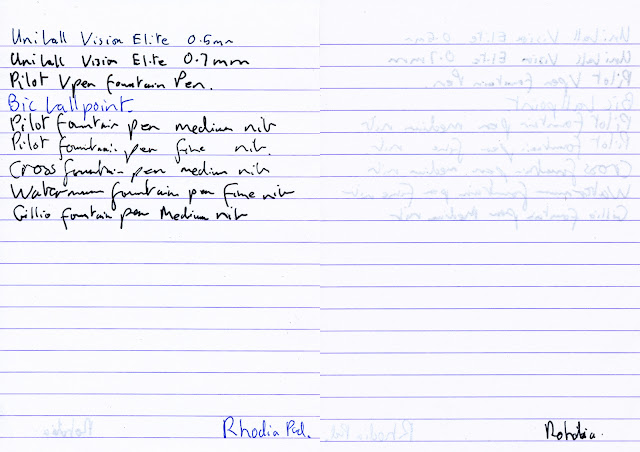 Uniball Vision Elite 0.5mm
Uniball Vision Elite 0.7mm
Pilot Vpen fountain Pen.
Bic ballpoint.
Pilot fountain pen medium nib
Pilot fountain pen fine nib.
Cross fountain pen medium nib
Waterman fountain pen fine nib
Gillio fountain pen Medium nib
Rhodia Pad.
Rohdia.